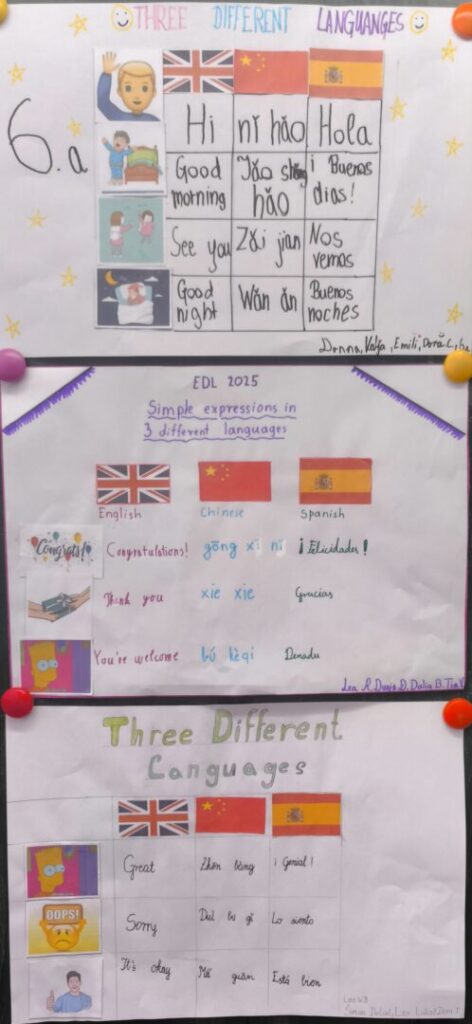 THREE DIFFERENT LANGUANGES
6.a
Hi nǐ hǎo Hola
Good morning Zǎo shàng hǎo ¡Buenos dias!
See you Zài jian Nos vemos
Good night Wǎn ǎn Buenos noches
Donna, Katja, Emili,
EDL 2025
Simple expressions in
3 different languages
English Chinese Spanish
Congrats!
Congratulations! gōng xǐ nǐ ¡Felicidades!
Thank you xie xie Gracias
You're welcome bú kèqi Denada
Lea R. Dunja D. Dalia B. Tia V.
Three Different
Languages
Great Zhēn bàng ¡Genial!
OOPS!
Sorry Duì bu qǐ Lo siento
It's okay Méi guān Está bien